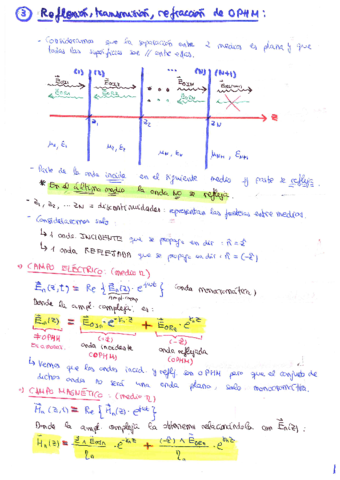 ③ Reflexión, transmisión, refracción de OPHM:
- Consideramos que la separación entre 2 medios es plana y que
todas las superficies son // entre ellas.
(1) (2) ... (N) (N+1)
z₁ z₂ z_N z
μ₁, ε₁ μ₂, ε₂ μ_N, ε_N
- Parte de la onda incide en el siguiente medio y parte se refleja.
* En el último medio la onda NO se refleja.
- z₁, z₂, ... z_N ≡ discontinuidades: representan las fronteras entre medios.
- Consideraremos solo:
↳ 1 onda INCIDENTE que se propaga en dir: n̂ = ẑ
↳ 1 onda REFLEJADA que se propaga en dir: n̂ = (-ẑ)
CAMPO ELÉCTRICO: (medio n)
E⃗n(z,t) = Re { E⃗n(z) · e^jωt } (onda monocromática)
Donde la ampl. compleja es:
(ẑ) (-ẑ)
≠ OPHM onda incidente onda reflejada
(OPHM) (OPHM)
↳ Vemos que las ondas incid. y refl. son OPHM pero que el conjunto de
dichas ondas no será una onda plana, solo monocromática.
CAMPO MAGNÉTICO: (medio n)
H⃗n(z,t) = Re { H⃗n(z) · e^jωt }
Donde la ampl. compleja la obtenemos relacionándola con E⃗n(z):
1